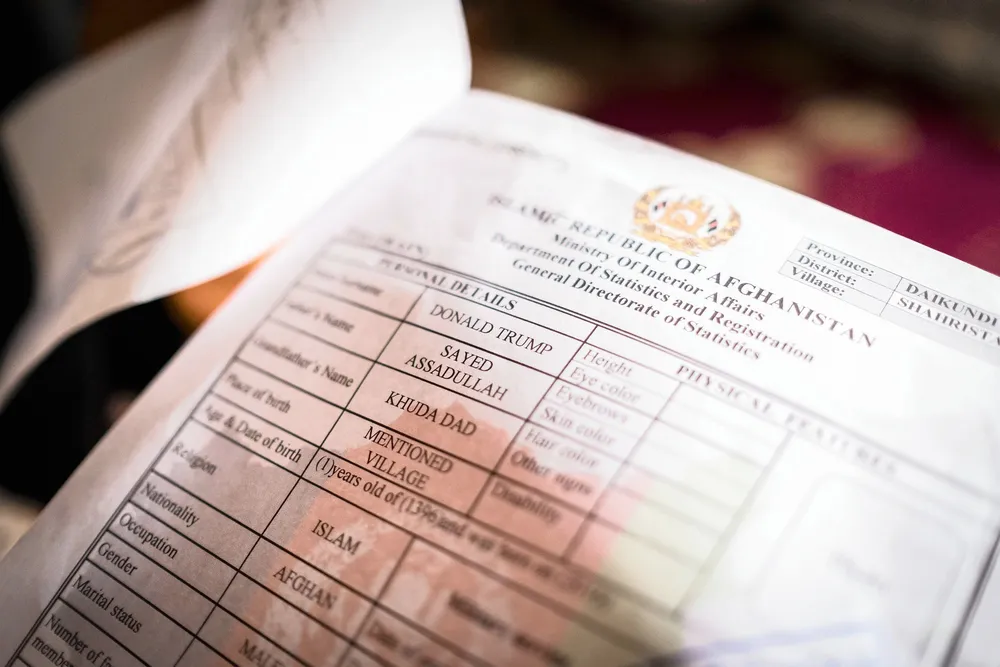 ISLAMIC REPUBLIC OF AFGHANISTAN
Ministry Of Interior Affairs
Department Of Statistics and Registration
General Directorate of Statistics
Province: DAIKUNDI
District: SHAHRISTA
Village:
PERSONAL DETAILS
PHYSICAL FEATURES
DONALD TRUMP
Name
SAYED
ASSADULLAH
Grandfather's Name
KHUDA DAD
Place of birth
MENTIONED
VILLAGE
Age & Date of birth
(1)years old of (1396)and was born
Religion
ISLAM
Nationality
AFGHAN
Occupation
Gender
MALE
Marital status
Number of
Height
Eye color
Eyebrows
Skin color
Hair color
Other signs
Disability